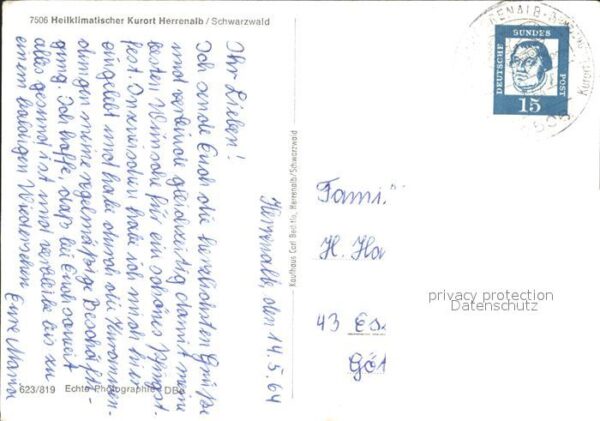 7506 Heilklimatischer Kurort Herrenalb / Schwarzwald
Ihr Lieben!
Ich sende Euch die herzlichsten Grüße
und verbinde gleichzeitig damit meine
besten Wünsche für ein schönes Pfingst-
fest. Inzwischen habe ich mich hier
eingelebt und habe durch die Kuranwen-
dungen meine regelmäßige Beschäfti-
gung. Ich hoffe, daß bei Euch soweit
alles gesund ist und verbleibe bis zu
einem baldigen Wiedersehen
Eure Mama
Herrenalb, den 14.5.64
623/819 Echte Photographie
Kaufhaus Carl Herrenalb/Schwarzwald
DEUTSCHE
BUNDES
POST
15
Kurort
Fami
H. Ha
43 Es
Göt
privacy protection
Datenschutz